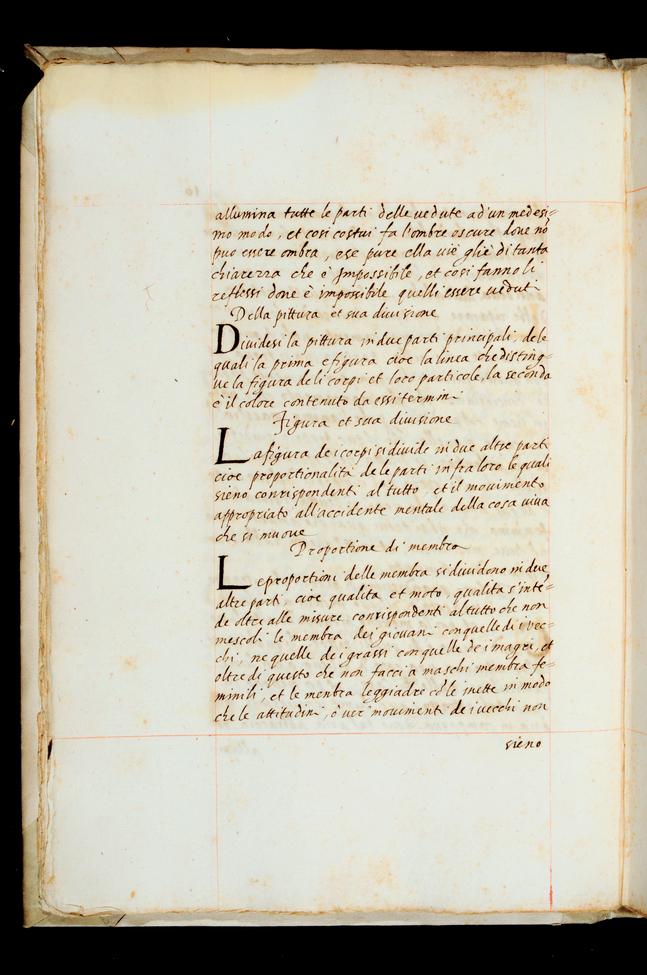 allumina tutte le parti delle vedute ad'un medesi=
mo modo, et cosi costui fa l'ombre oscure doue nō
puo essere ombra, e se pure ella viè gliè di tanta
chiarezza che è Impossibile, et cosi fanno li
reflessi doue è impossibile quelli essere veduti
Della pittura et sua diuisione
Diuidesi la pittura in due parti principali, dele
quali la prima e figura cioe la linea che disting=
ue la figura de li corpi et loro particole, la seconda
è il colore contenuto da essi termini
Figura et sua diuisione
La figura de i corpi si diuide in due altre parti
cioe proportionalità de le parti infra loro le quali
sieno conrispondenti al tutto, et il mouimento
appropriato all'accidente mentale della cosa viua
che si muoue
Proportione di membra
Le proportioni delle membra si diuidono in due
altre parti, cioe qualita et moto, qualita s'intē=
de oltre alle misure conrispondenti al tutto che non
mescoli le membra dei giouani con quelle di i vec=
chi, ne quelle de i grassi con quelle de i magri, et
oltre di questo che non facci a maschi membra fe=
minili, et le menbra leggiadre cō le inette in modo
che le attitudini, ò ver mouimenti de i vecchi non
sieno